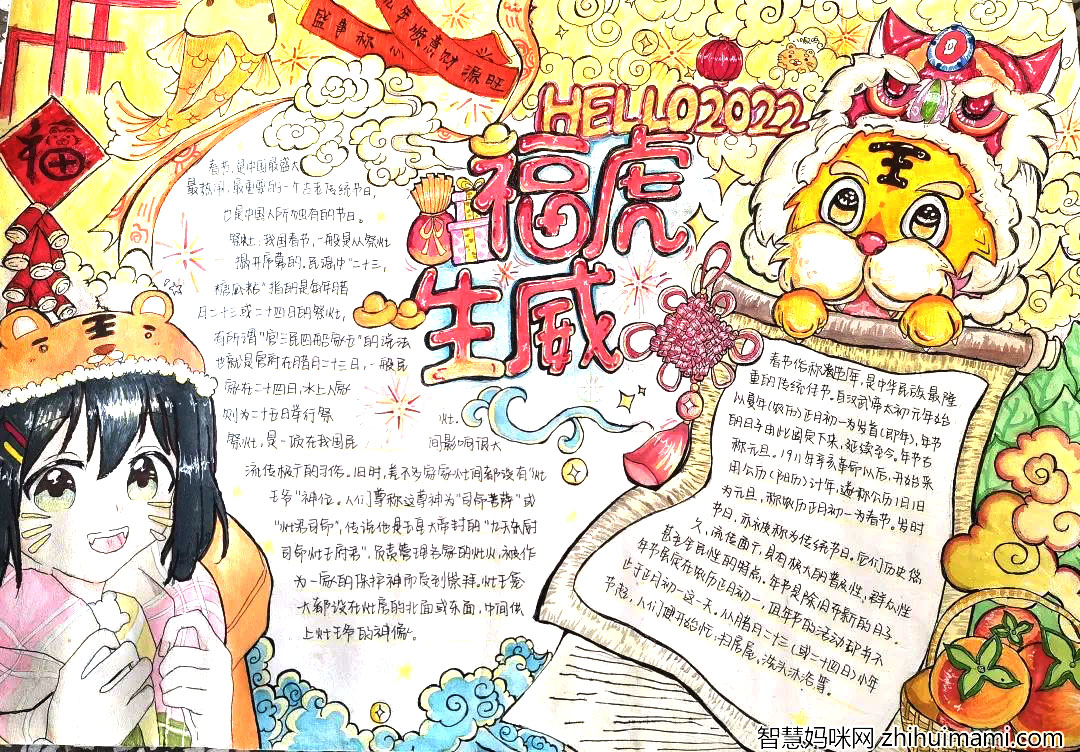 盛事称心
虎年顺意财源旺
HELLO2022
福虎
生威
福
王
王
春节,是中国最盛大
最热闹、最重要的一个古老传统节日,
也是中国人所独有的节日。
祭灶,我国春节,一般是从祭灶
揭开序幕的。民谣中"二十三,
糖瓜粘"指的是每年腊
月二十三或二十四日的祭灶,
有所谓"官三民四船家五"的说法
也就是官府在腊月二十三日,一般民
家在二十四日,水上人家
则为二十五日举行祭
灶。
祭灶,是一项在我国民
间影响很大
流传极广的习俗。旧时,差不多家家灶间都设有"灶
王爷"神位。人们尊称这尊神为"司命菩萨"或
"灶君司命",传说他是玉皇大帝封的"九天东厨
司命灶王府君",负责管理各家的灶火,被作
为一家的保护神而受到崇拜。灶王龛
大都设在灶房的北面或东面,中间供
上灶王爷的神像。
春节俗称
年,是中华民族最隆
重的传统佳节。自汉武帝太初元年始
以夏年(农历)正月初一为岁首(即年),年节
的日子由此固定下来,延续至今。年节古
称元旦。1911年辛亥革命以后,开始采
用公历(阳历)计年,遂称公历1月1日
为元旦,称农历正月初一为春节。岁时
节日,亦被称为传统节日。它们历史悠
久、流传面广,具有极大的普及性、群众性
甚至全民性的特点。年节是除旧布新的日子。
年节虽定在农历正月初一,但年节的活动却并不
止于正月初一这一天。从腊月二十三(或二十四日)小年
节起,人们便开始忙,扫房屋、洗头沐浴等。
智慧妈咪网 zhihuimami.com